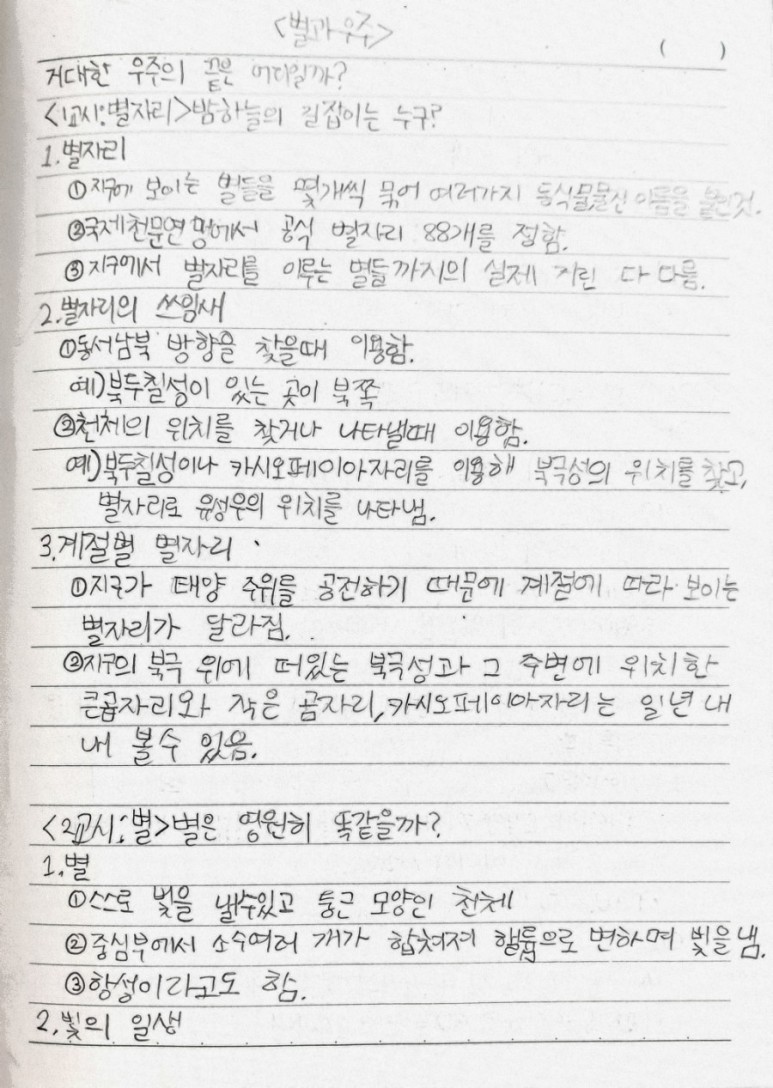 <별과 우주>
( )
거대한 우주의 끝은 어디일까?
<1교시:별자리>밤하늘의 길잡이는 누구?
1.별자리
①지구에 보이는 별들을 몇개씩 묶어 여러가지 동식물,물신 이름을 붙인것.
②국제천문연맹에서 공식 별자리 88개를 정함.
③지구에서 별자리를 이루는 별들까지의 실제 거린 다 다름.
2.별자리의 쓰임새
①동서남북 방향을 찾을때 이용함.
예)북두칠성이 있는 곳이 북쪽
②천체의 위치를 찾거나 나타낼때 이용함.
예)북두칠성이나 카시오페이아자리를 이용해 북극성의 위치를 찾고,
별자리로 유성우의 위치를 나타냄.
3.계절별 별자리
①지구가 태양 주위를 공전하기 때문에 계절에 따라 보이는
별자리가 달라짐.
②지구의 북극 위에 떠있는 북극성과 그 주변에 위치한
큰곰자리와 작은 곰자리,카시오페이아자리는 일년 내
내 볼수 있음.
<2교시:별>별은 영원히 똑같을까?
1.별
①스스로 빛을 낼수있고 둥근 모양인 천체
②중심부에서 소수여러 개가 합쳐져 헬륨으로 변하며 빛을 냄.
③항성이라고도 함.
2.빛의 일생